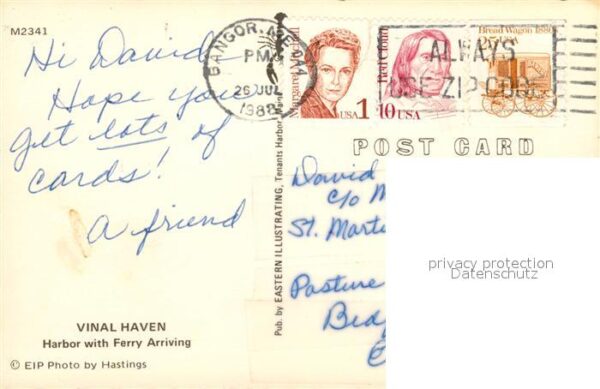 M2341
Hi David
Hope you
get lots of
cards!
A friend
VINAL HAVEN
Harbor with Ferry Arriving
© EIP Photo by Hastings
Pub. by EASTERN ILLUSTRATING, Tenants Harbor
BANGOR, ME
PM
26 JUL
1988
Margaret Mitchell
USA 1
Red Cloud
10 USA
Bread Wagon 1880s
25 USA
ALWAYS
USE ZIP CODE
POST CARD
David
c/o M
St. Marti
Pasture
Bed
privacy protection
Datenschutz